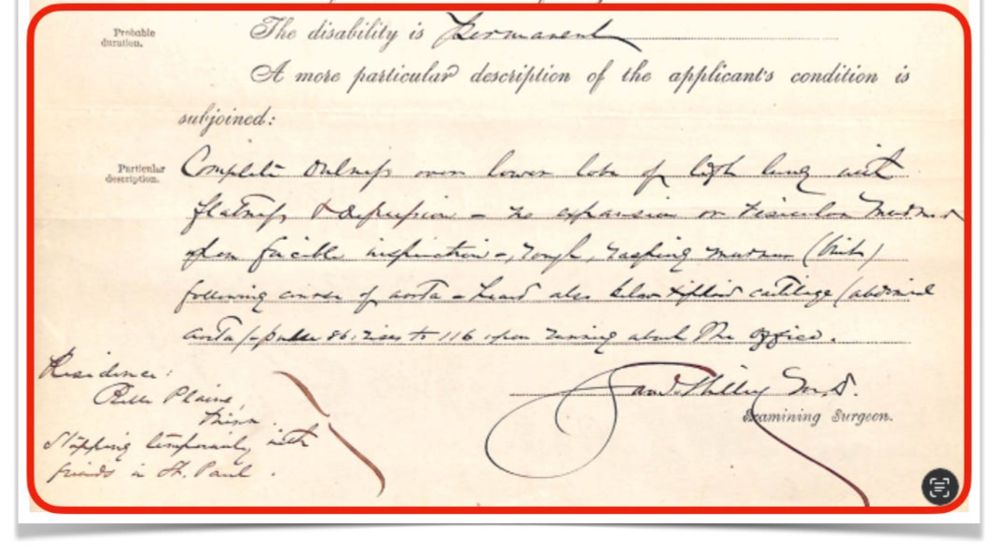 Probable
duration.
The disability is Permanent
A more particular description of the applicant's condition is
subjoined:
Particular
description.
Complete Dulness over lower lobe of lung with
flatness & depression - no expansion or murmur
upon forcible inspiration -, rough, rasping murmur
following course of aorta - heard also below cartilage (abdominal
aorta) - pulse 86; rises to 116 upon running about the office.
Residence:
Belle Plaine,
Minn.
Stopping temporarily with
friends in St. Paul.
M.D.
Examining Surgeon.